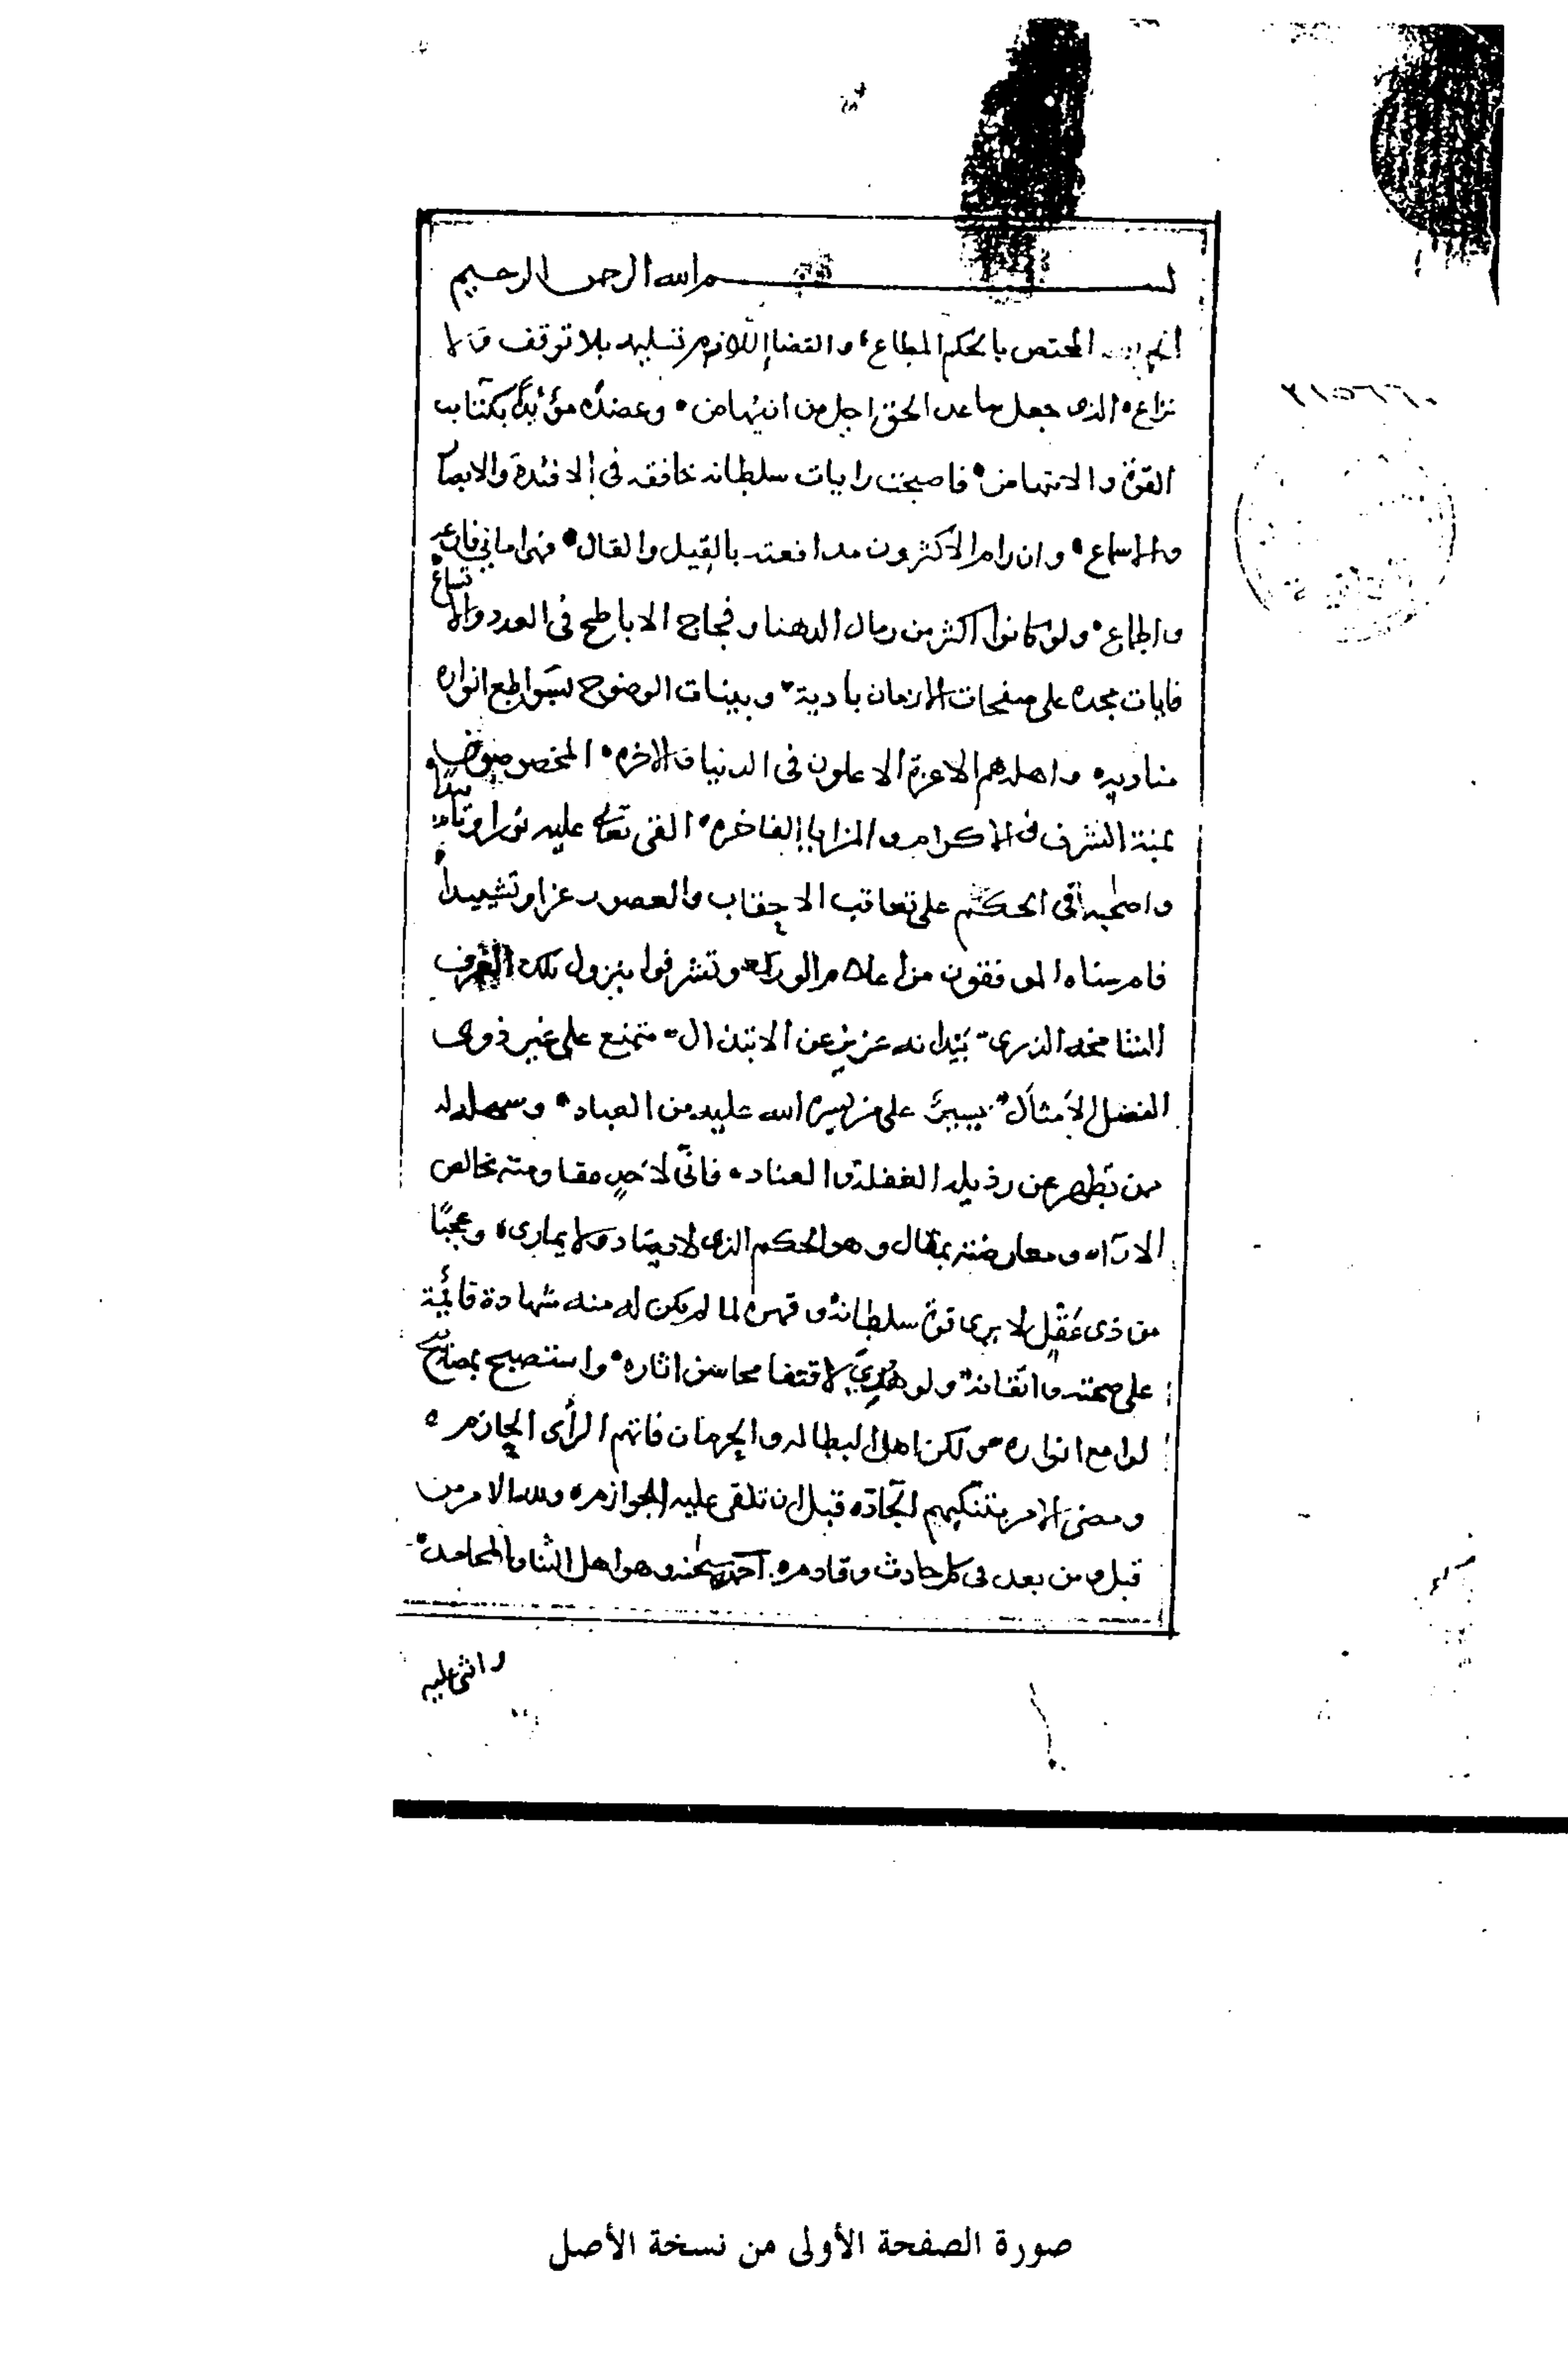 بسم الله الرحمن الرحيم
الحمد لله المختص بالحكم المطاع، والقضا اللازم تسليمه بلا توقف ولا
نزاع، الذى جعل ساعد الحق اجل من انتهاض، وعضده مؤيدا بكتاب
القوة والانتهاض، فاصبحت رايات سلطانه خافقه فى الافئدة والابصار
والاسماع، وان رام الاكثرون مدافعته بالقيل والقال،
ولو كانوا اكثر من رمال الدهنا وفجاج الاباطح فى العدد والاتساع
فايات مجده على صفحات الازمان بادية، وبينات الوضوح لسواطع انواره
مناديه، واهله هم الاعزة الاعلون فى الدنيا والاخره،
الشرف والاكرام والمزايا الفاخره، القى تعالى عليه نورا وتابيدا
على تعاقب الاحقاب والعصور عزا وتشييدا
الموفقون من اعلام الورى، وتشرفوا بنزول تلك الغرف
الشامخه الذرى، بيد انه عزيز عن الابتذال، متمنع على غير ذوى
الفضل الأمثال، يسير على من يسره الله عليه من العباد، وسهل له
ممن تطهر عن رذيله الغفلة والعناد، فانّى لاحدٍ مقاومته بخالص
الاراء، ومعارضته بمقال وهو الحكم الذى لا يضاد ولا يمارى، وعجبًا
من ذى عقل لا يرى قوة سلطانه وقهره لما لم يكن له منه شهادة قائمة
على صحته واتقانه، ولو هُدِيَ لاقتفا محاسن اثاره، واستصبح بمصابيح
لوامع انواره، ولكن اهل البطاله والحرمان فاتهم الرأى الجازم،
ومضى الامر بتنكبهم الجادّه قبل ان تلقى عليه الجوازم، ولله الامر من
قبل ومن بعد فى كل حادث وقادم، احمده سبحنه وهو اهل الثنا والمحامد،
واثنى عليه
صورة الصفحة الأولى من نسخة الأصل